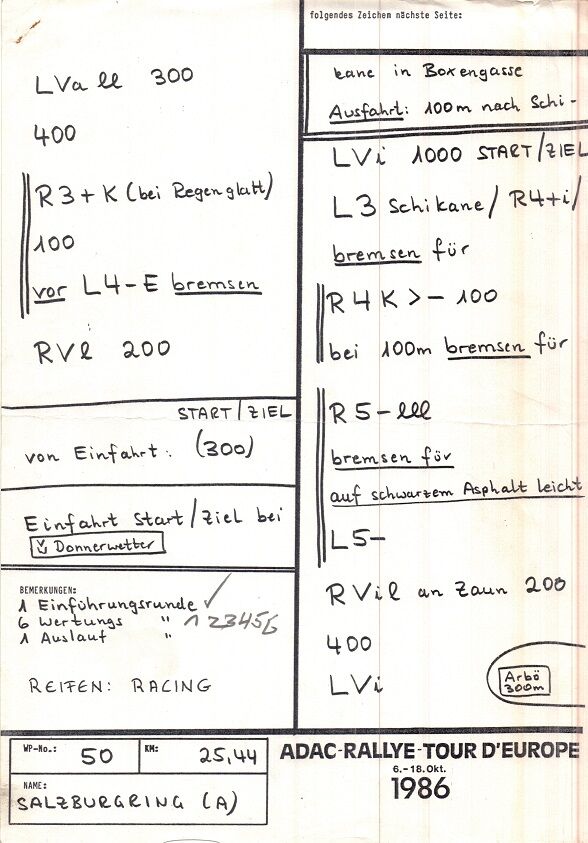 LVa ll 300
400
R3+K (bei Regen glatt)
100
vor L4-E bremsen
RVl 200
START/ZIEL
von Einfahrt: (300)
Einfahrt Start/Ziel bei
Donnerwetter
BEMERKUNGEN:
1 Einführungsrunde ✓
6 Wertungs " 1 2 3 4 5 6
1 Auslauf "
REIFEN: RACING
folgendes Zeichem nächste Seite:
kane in Boxengasse
Ausfahrt: 100m nach Schi-
LVi 1000 START/ZIEL
L3 Schikane/ R4+i/
bremsen für
R4K >- 100
bei 100m bremsen für
R5- lll
bremsen für
auf schwarzem Asphalt leicht
L5-
RVil an Zaun 200
400
LVi
Arbö
300m
WP-No.: 50 KM: 25,44
NAME:
SALZBURGRING (A)
ADAC-RALLYE-TOUR D'EUROPE
6.-18.Okt.
1986